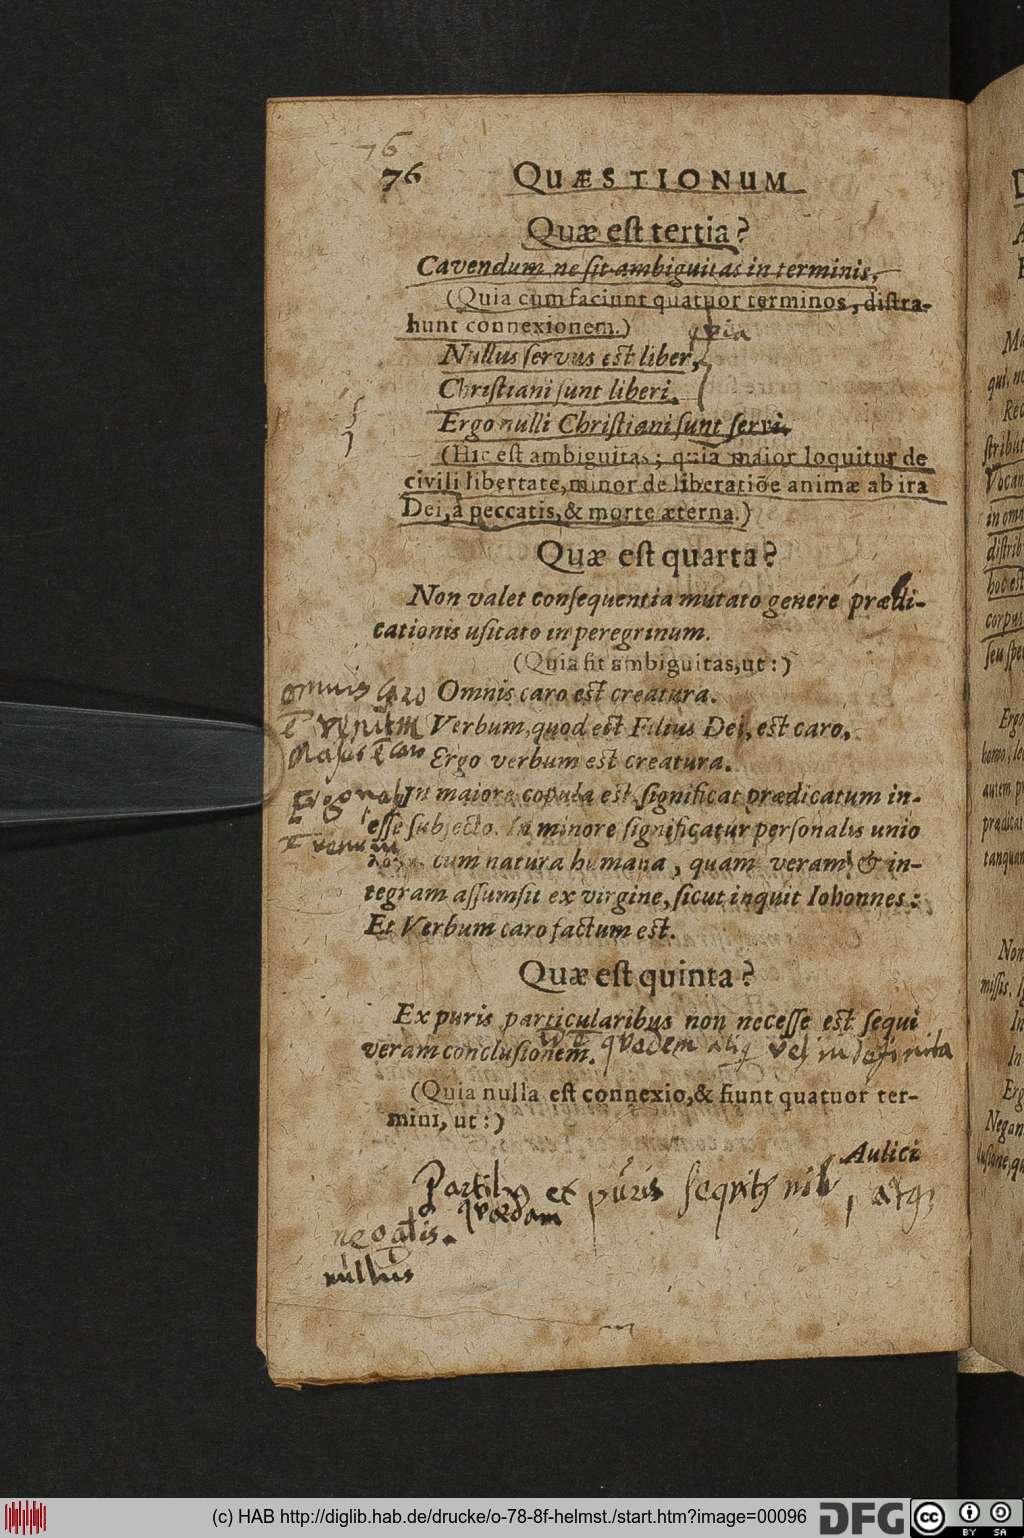 76
76 QUÆSTIONUM
Quæ eſt tertia?
Cavendum ne ſit ambiguitas in terminis.
(Quia cum faciunt quatuor terminos, diſtra-
hunt connexionem.)
quia
Nullus ſervus est liber,
Chriſtiani ſunt liberi.
Ergo nulli Chriſtiani ſunt ſervi.
(Hic eſt ambiguitas; quia maior loquitur de
civili libertate, minor de liberatiõe animæ ab ira
Dei, à peccatis, & morte æterna.)
Quæ eſt quarta?
Non valet conſequentia mutato genere prædi-
cationis uſitato in peregrinum.
(Quia fit ambiguitas, ut:)
omnis caro
Omnis caro est creatura.
Verbum, quod est Filius Dei, est caro.
Ergo verbum est creatura.
In maiore copula est, ſignificat prædicatum in-
eſſe ſubjecto. In minore ſignificatur perſonalis unio
λόγου cum natura humana, quam veram & in-
tegram aſſumſit ex virgine, ſicut inquit Iohonnes:
Et Verbum caro factum est.
Quæ eſt quinta?
Ex puris particularibus non neceſſe est ſequi
veram concluſionem.
quædem vel indefinita
(Quia nulla eſt connexio, & fiunt quatuor ter-
mini, ut:)
Aulici
et puris ſequitur nil,
quædam
nullus
(c) HAB http://diglib.hab.de/drucke/o-78-8f-helmst./start.htm?image=00096
DFG
cc
BY SA